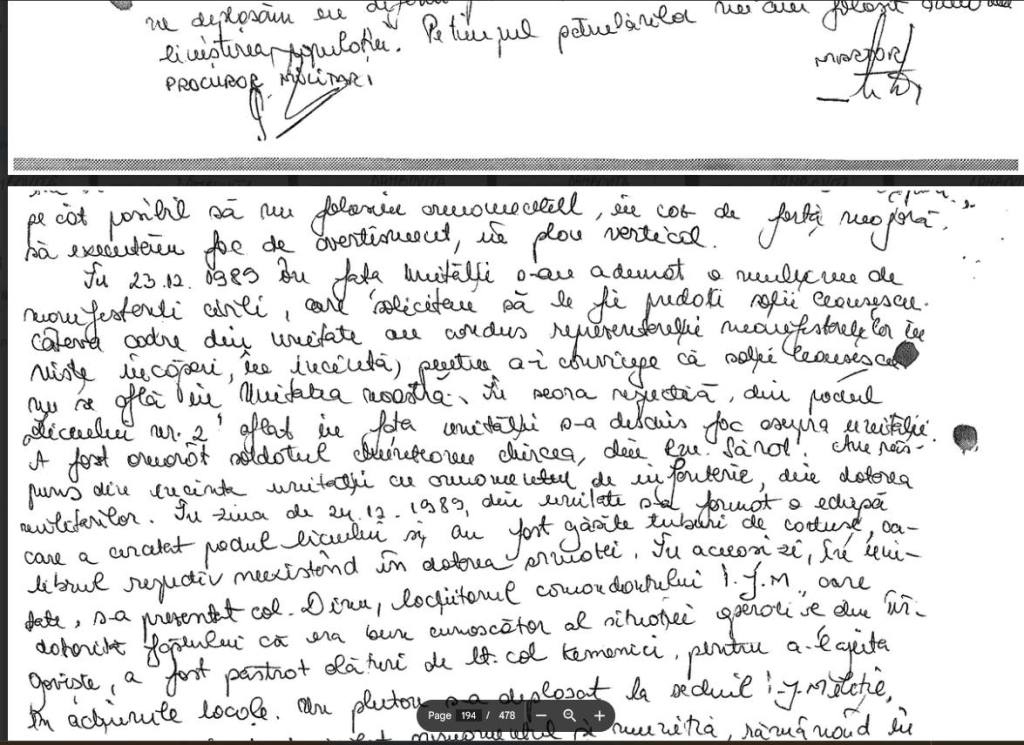 ne deplasăm cu
liniștirea populației. Pe timpul patrulărilor nu am folosit
PROCUROR MILITAR, MARTOR
pe cât posibil să nu folosim armamentul, în caz de forță majoră,
să executăm foc de avertisment, în plan vertical.
În 23.12.1989 în fața Unității s-au adunat o mulțime de
manifestanți civili, care solicitau să le fie predați soții Ceaușescu.
Câteva cadre din unitate au condus reprezentanții manifestanților în
niște încăperi, (în incintă) pentru a-i convinge că soții Ceaușescu
nu se află în Unitatea noastră. În seara respectivă, din podul
"Liceului nr. 2" aflat în fața unității s-a deschis foc asupra unității.
A fost omorât soldatul Mircea, din Rm. Sărat. Am răs-
puns din incinta unității cu armamentul de infanterie, din dotarea
militarilor. În ziua de 24.12.1989, din unitate s-a format o echipă
care a curățat podul liceului și au fost găsite tuburi de cartușe, ca-
librul respectiv neexistând în dotarea armatei. În aceeași zi, în uni-
tate, s-a prezentat col. Dinu, locțiitorul comandantului I.J.M., care
datorită faptului că era bun cunoscător al situației operative din Tîr-
goviște, a fost păstrat alături de lt. col. Kemenici, pentru a-l ajuta
în acțiunile locale. Un pluton s-a deplasat la sediul I.J. Miliție,
armamentul și muniția, rămânând în
Page 194 / 478